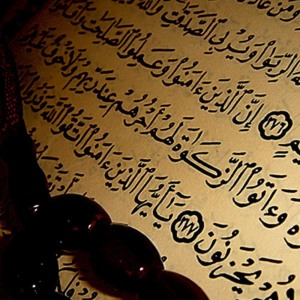 عَادَ
ٱلرِّبَوٰا۟ وَيُرْبِى ٱلصَّدَقَٰتِ وَٱللَّهُ
٢٧٦ إِنَّ ٱلَّذِينَ ءَامَنُوا۟ وَعَمِلُوا۟ ٱلصَّٰلِحَٰتِ
وَءَاتَوُا۟ ٱلزَّكَوٰةَ لَهُمْ أَجْرُهُمْ عِندَ رَبِّهِمْ وَلَا خَوْفٌ
يَحْزَنُونَ ٢٧٧ يَٰٓأَيُّهَا ٱلَّذِينَ ءَامَنُوا۟ ٱتَّقُوا۟ ٱللَّهَ